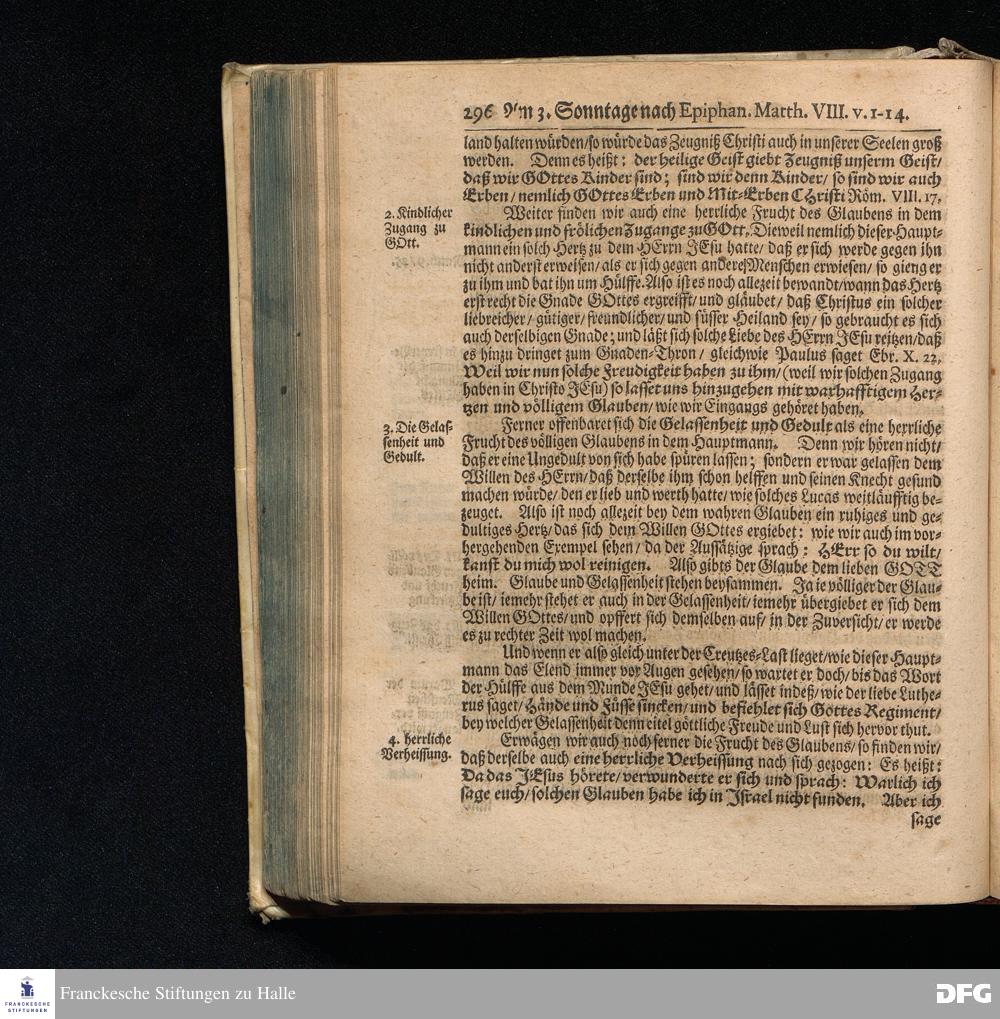 296 Am 3. Sonntage nach Epiphan. Matth. VIII. v. 1-14.
land halten würden/ so würde das Zeugniß Christi auch in unserer Seelen groß
werden. Denn es heißt: der heilige Geist giebt Zeugniß unserm Geist/
daß wir GOttes Kinder sind; sind wir denn Kinder/ so sind wir auch
Erben/ nemlich GOttes Erben und Mit-Erben CHristi Röm. VIII. 17.
2. Kindlicher
Zugang zu
GOtt.
Weiter finden wir auch eine herrliche Frucht des Glaubens in dem
kindlichen und frölichen Zugange zu GOtt. Dieweil nemlich dieser Haupt-
mann ein solch Hertz zu dem HErrn JEsu hatte/ daß er sich werde gegen ihn
nicht anderst erweisen/ als er sich gegen andere Menschen erwiesen/ so gieng er
zu ihm und bat ihn um Hülffe. Also ist es noch allezeit bewandt/ wann das Hertz
erst recht die Gnade GOttes ergreifft/ und gläubet/ daß Christus ein solcher
liebreicher/ gütiger/ freundlicher/ und süsser Heiland sey/ so gebraucht es sich
auch derselbigen Gnade; und läßt sich solche Liebe des HErrn JEsu reitzen/ daß
es hinzu dringet zum Gnaden-Thron/ gleichwie Paulus saget Ebr. X. 22.
Weil wir nun solche Freudigkeit haben zu ihm/ (weil wir solchen Zugang
haben in Christo JEsu) so lasset uns hinzugehen mit warhafftigem Her-
tzen und völligem Glauben/ wie wir Eingangs gehöret haben.
3. Die Gelas-
senheit und
Gedult.
Ferner offenbaret sich die Gelassenheit und Gedult als eine herrliche
Frucht des völligen Glaubens in dem Hauptmann. Denn wir hören nicht/
daß er eine Ungedult von sich habe spüren lassen; sondern er war gelassen dem
Willen des HErrn/ daß derselbe ihm schon helffen und seinen Knecht gesund
machen würde/ den er lieb und werth hatte/ wie solches Lucas weitläufftig be-
zeuget. Also ist noch allezeit bey dem wahren Glauben ein ruhiges und ge-
dultiges Hertz/ das sich dem Willen GOttes ergiebet: wie wir auch im vor-
hergehenden Exempel sehen/ da der Aussätzige sprach: HErr so du wilt/
kanst du mich wol reinigen. Also gibts der Glaube dem lieben GOTT
heim. Glaube und Gelassenheit stehen beysammen. Ja ie völliger der Glau-
be ist/ iemehr stehet er auch in der Gelassenheit/ iemehr übergiebet er sich dem
Willen GOttes/ und opffert sich demselben auf/ in der Zuversicht/ er werde
es zu rechter Zeit wol machen.
Und wenn er also gleich unter der Creutzes-Last lieget/ wie dieser Haupt-
mann das Elend immer vor Augen gesehen/ so wartet er doch/ bis das Wort
der Hülffe aus dem Munde JEsu gehet/ und lässet indeß/ wie der liebe Luthe-
rus saget/ Hände und Füsse sincken/ und befiehlet sich Gottes Regiment/
bey welcher Gelassenheit denn eitel göttliche Freude und Lust sich hervor thut.
4. herrliche
Verheissung.
Erwägen wir auch noch ferner die Frucht des Glaubens/ so finden wir/
daß derselbe auch eine herrliche Verheissung nach sich gezogen: Es heißt:
Da das JEsus hörete/ verwunderte er sich und sprach: Warlich ich
sage euch/ solchen Glauben habe ich in Israel nicht funden. Aber ich
sage
FRANCKESCHE
STIFTUNGEN
Franckesche Stiftungen zu Halle
DFG